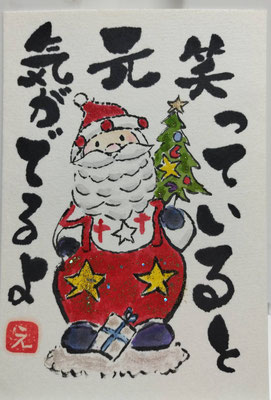 笑っていると
元
気がでるよ
え